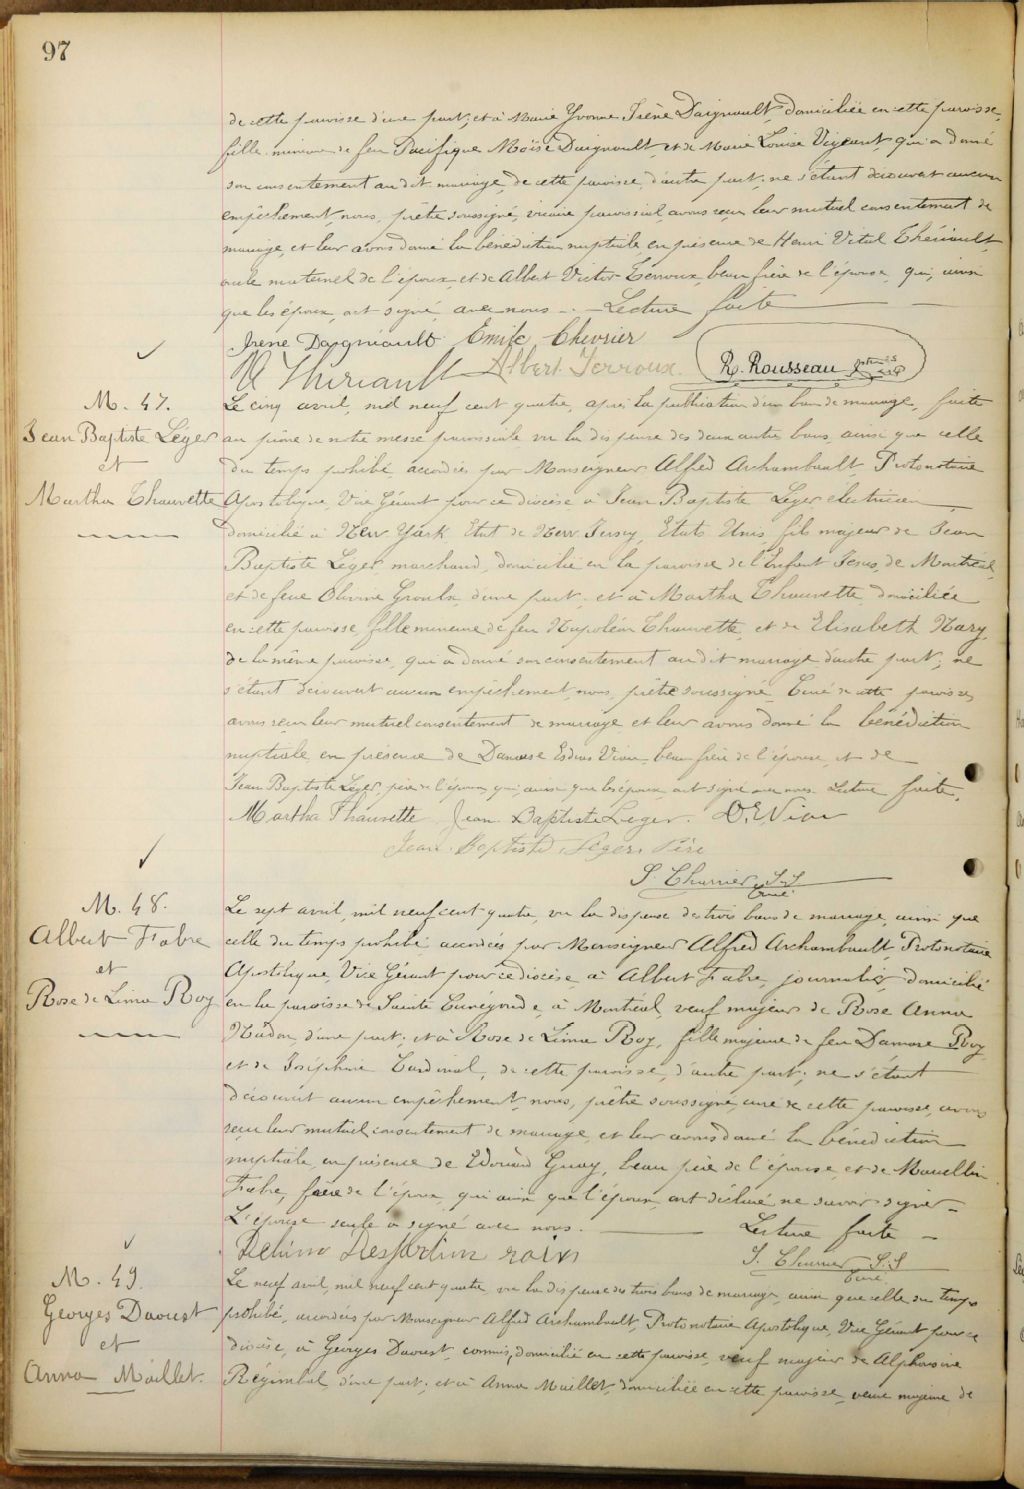 97
de cette paroisse d'une part, et à Marie Yvonne Irène Daigneault, domiciliée en cette paroisse,
fille mineure de feu Pacifique Moïse Daignault, et de Marie Louise Vigeant qui a donné
son consentement au dit mariage, de cette paroisse, d'autre part; ne s'étant découvert aucun
empêchement, nous, prêtre soussigné, vicaire paroissial avons reçu leur mutuel consentement de
mariage, et leur avons donné la bénédiction nuptiale en présence de Henri Vital Thériault,
oncle maternel de l'époux, et de Albert Victor Terroux, beau frère de l'épouse, qui, ainsi
que les époux, ont signé avec nous. Lecture faite
Irene Daigniault Emile Chevrier
Thériault Albert Terroux R. Rousseau ptre
M. 47.
Jean Baptiste Léger
et
Martha Thauvette
Le cinq avril, mil neuf cent quatre, après la publication d'un ban de mariage, faite
au prône de notre messe paroissiale vu la dispense des deux autres bans, ainsi que celle
du temps prohibé, accordées par Monseigneur Alfred Archambault Protonotaire
Apostolique, Vice Gérant pour ce diocèse à Jean Baptiste Léger, électricien
domicilié à New York Etat de New Jersey, Etats Unis, fils majeur de Jean
Baptiste Léger, marchand, domicilié en la paroisse de l'Enfant Jésus, de Montréal,
et de feue Olivine Groulx, d'une part; et à Martha Thauvette, domiciliée
en cette paroisse, fille mineure de feu Napoléon Thauvette, et de Elisabeth Nary,
de la même paroisse, qui a donné son consentement au dit mariage d'autre part; ne
s'étant découvert aucun empêchement, nous, prêtre soussigné Curé de cette paroisse,
avons reçu leur mutuel consentement de mariage et leur avons donné la bénédiction
nuptiale, en présence de Damase Esdras Viau, beau frère de l'épouse, et de
Jean Baptiste Léger, père de l'époux, qui, ainsi que les époux, ont signé avec nous. Lecture faite.
Martha Thauvette Jean Baptiste Leger. D. E. Viau
Jean Baptiste Léger Père
Curé
M. 48.
Albert Fabre
et
Rose de Lima Roy
Le sept avril, mil neuf cent quatre, vu la dispense des trois bans de mariage, ainsi que
celle du temps prohibé, accordées par Monseigneur Alfred Archambault, Protonotaire
Apostolique, Vice Gérant pour ce diocèse, à Albert Fabre, journalier, domicilié
en la paroisse de Sainte Cunégonde, à Montréal, veuf majeur de Rose Anna
Nadon, d'une part; et à Rose de Lima Roy, fille majeure de feu Damase Roy,
et de Joséphine Cardinal, de cette paroisse, d'autre part; ne s'étant
découvert aucun empêchement, nous, prêtre soussigné, curé de cette paroisse, avons
reçu leur mutuel consentement de mariage, et leur avons donné la bénédiction
nuptiale, en présence de Edouard Guay, beau père de l'épouse, et de
Fabre, frère de l'époux, qui ainsi que l'époux, ont déclaré ne savoir signer.
L'épouse seule a signé avec nous. Lecture faite
Curé
M. 49.
Georges Daoust
et
Anna Maillet.
Le neuf avril, mil neuf cent quatre, vu la dispense des trois bans de mariage, ainsi que celle du temps
prohibé, accordées par Monseigneur Alfred Archambault, Protonotaire Apostolique, Vice Gérant pour ce
diocèse, à Georges Daoust, commis, domicilié en cette paroisse, veuf majeur de Alphonsine
Régimbal d'une part; et à Anna Maillet, domiciliée en cette paroisse, veuve majeure de